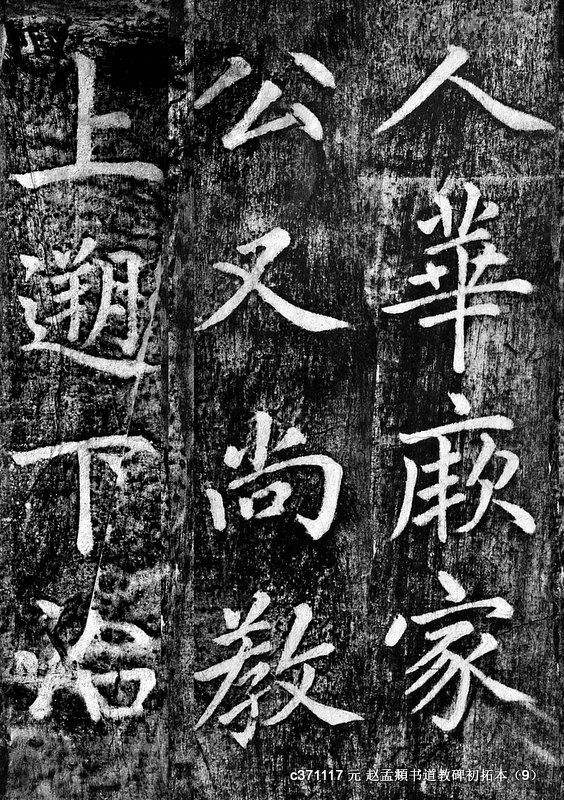 人華厥家
公又尚教
上遡下沿
c371117 元 赵孟頫书道教碑初拓本（9）